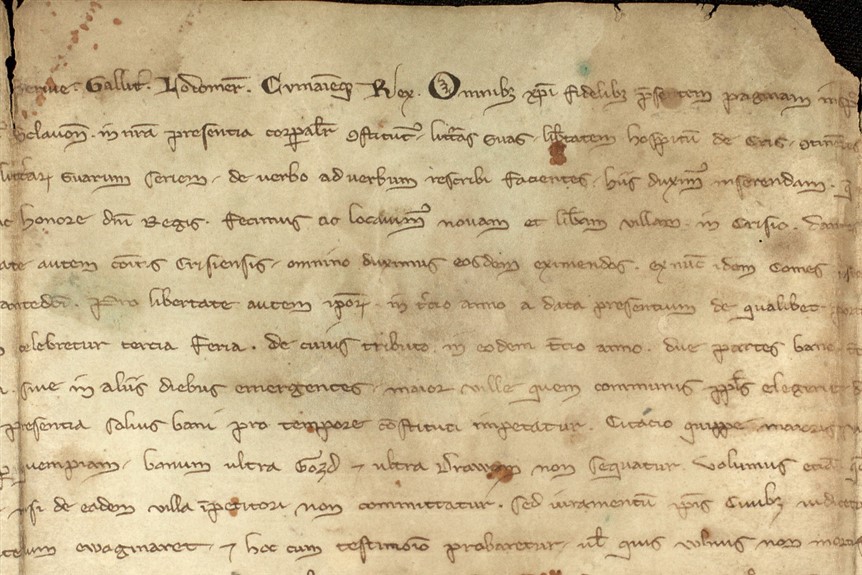 Seruie. Gallic̄. Lodomer̄. Cumaieq₃ Rex. Omnib₃ xp̄i fidelib₃ p̄sentem paginam insp̄
Sclauon̄. in nr̄a presentia corp̱alr̄ ꝯstitut᷒. litt̄as suas lib̄tatem hospitū de Cris.
litt̄aꝝ suarum seriem. de verbo ad verbum rescribi facientes. hiis duxim᷒ inserendam.
honore dn̄i Regis. fecimus ac locauim᷒ nouam et lib̄am villam. in Crisio.
autem com̄t̄s Crisiensis. omnino duximus eosdem eximendos. ex nūc idem Comes
Pro libertate autem ip̄oꝝ. in t̄cio anno a data presentium de qualibet
celebretur tercia feria. de cuius tributo. in eodem t̄cio anno. due partes bano
siue in aliis diebus emergentes. maior ville quem communis pp̄ls elegerit
presentia salius bani pro tempore cōstituti impetatur. Citacio quippe maioris
quempiam. banum ultra Gozd ⁊ ultra Drawam non sequatur. Volumus etiā
si de eadem villa īpetitori non committatur. sed iuramentū ip̄is Ciuib₃
ewaginaret. ⁊ hoc cum testimōio probaretur. ul̄ quis vulnus non